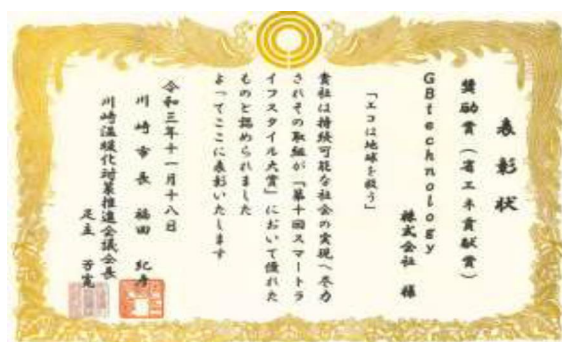 表彰状
奨励賞（省エネ貢献賞）
GBtechnology
株式会社 様
「エコは地球を救う」
貴社は持続可能な社会の実現へ尽力
されその取組が「第十回スマートラ
イフスタイル大賞」において優れた
ものと認められました
よってここに表彰いたします
令和三年十一月十八日
川崎市長 福田 紀彦
川崎温暖化対策推進会議会長
足立 芳寛